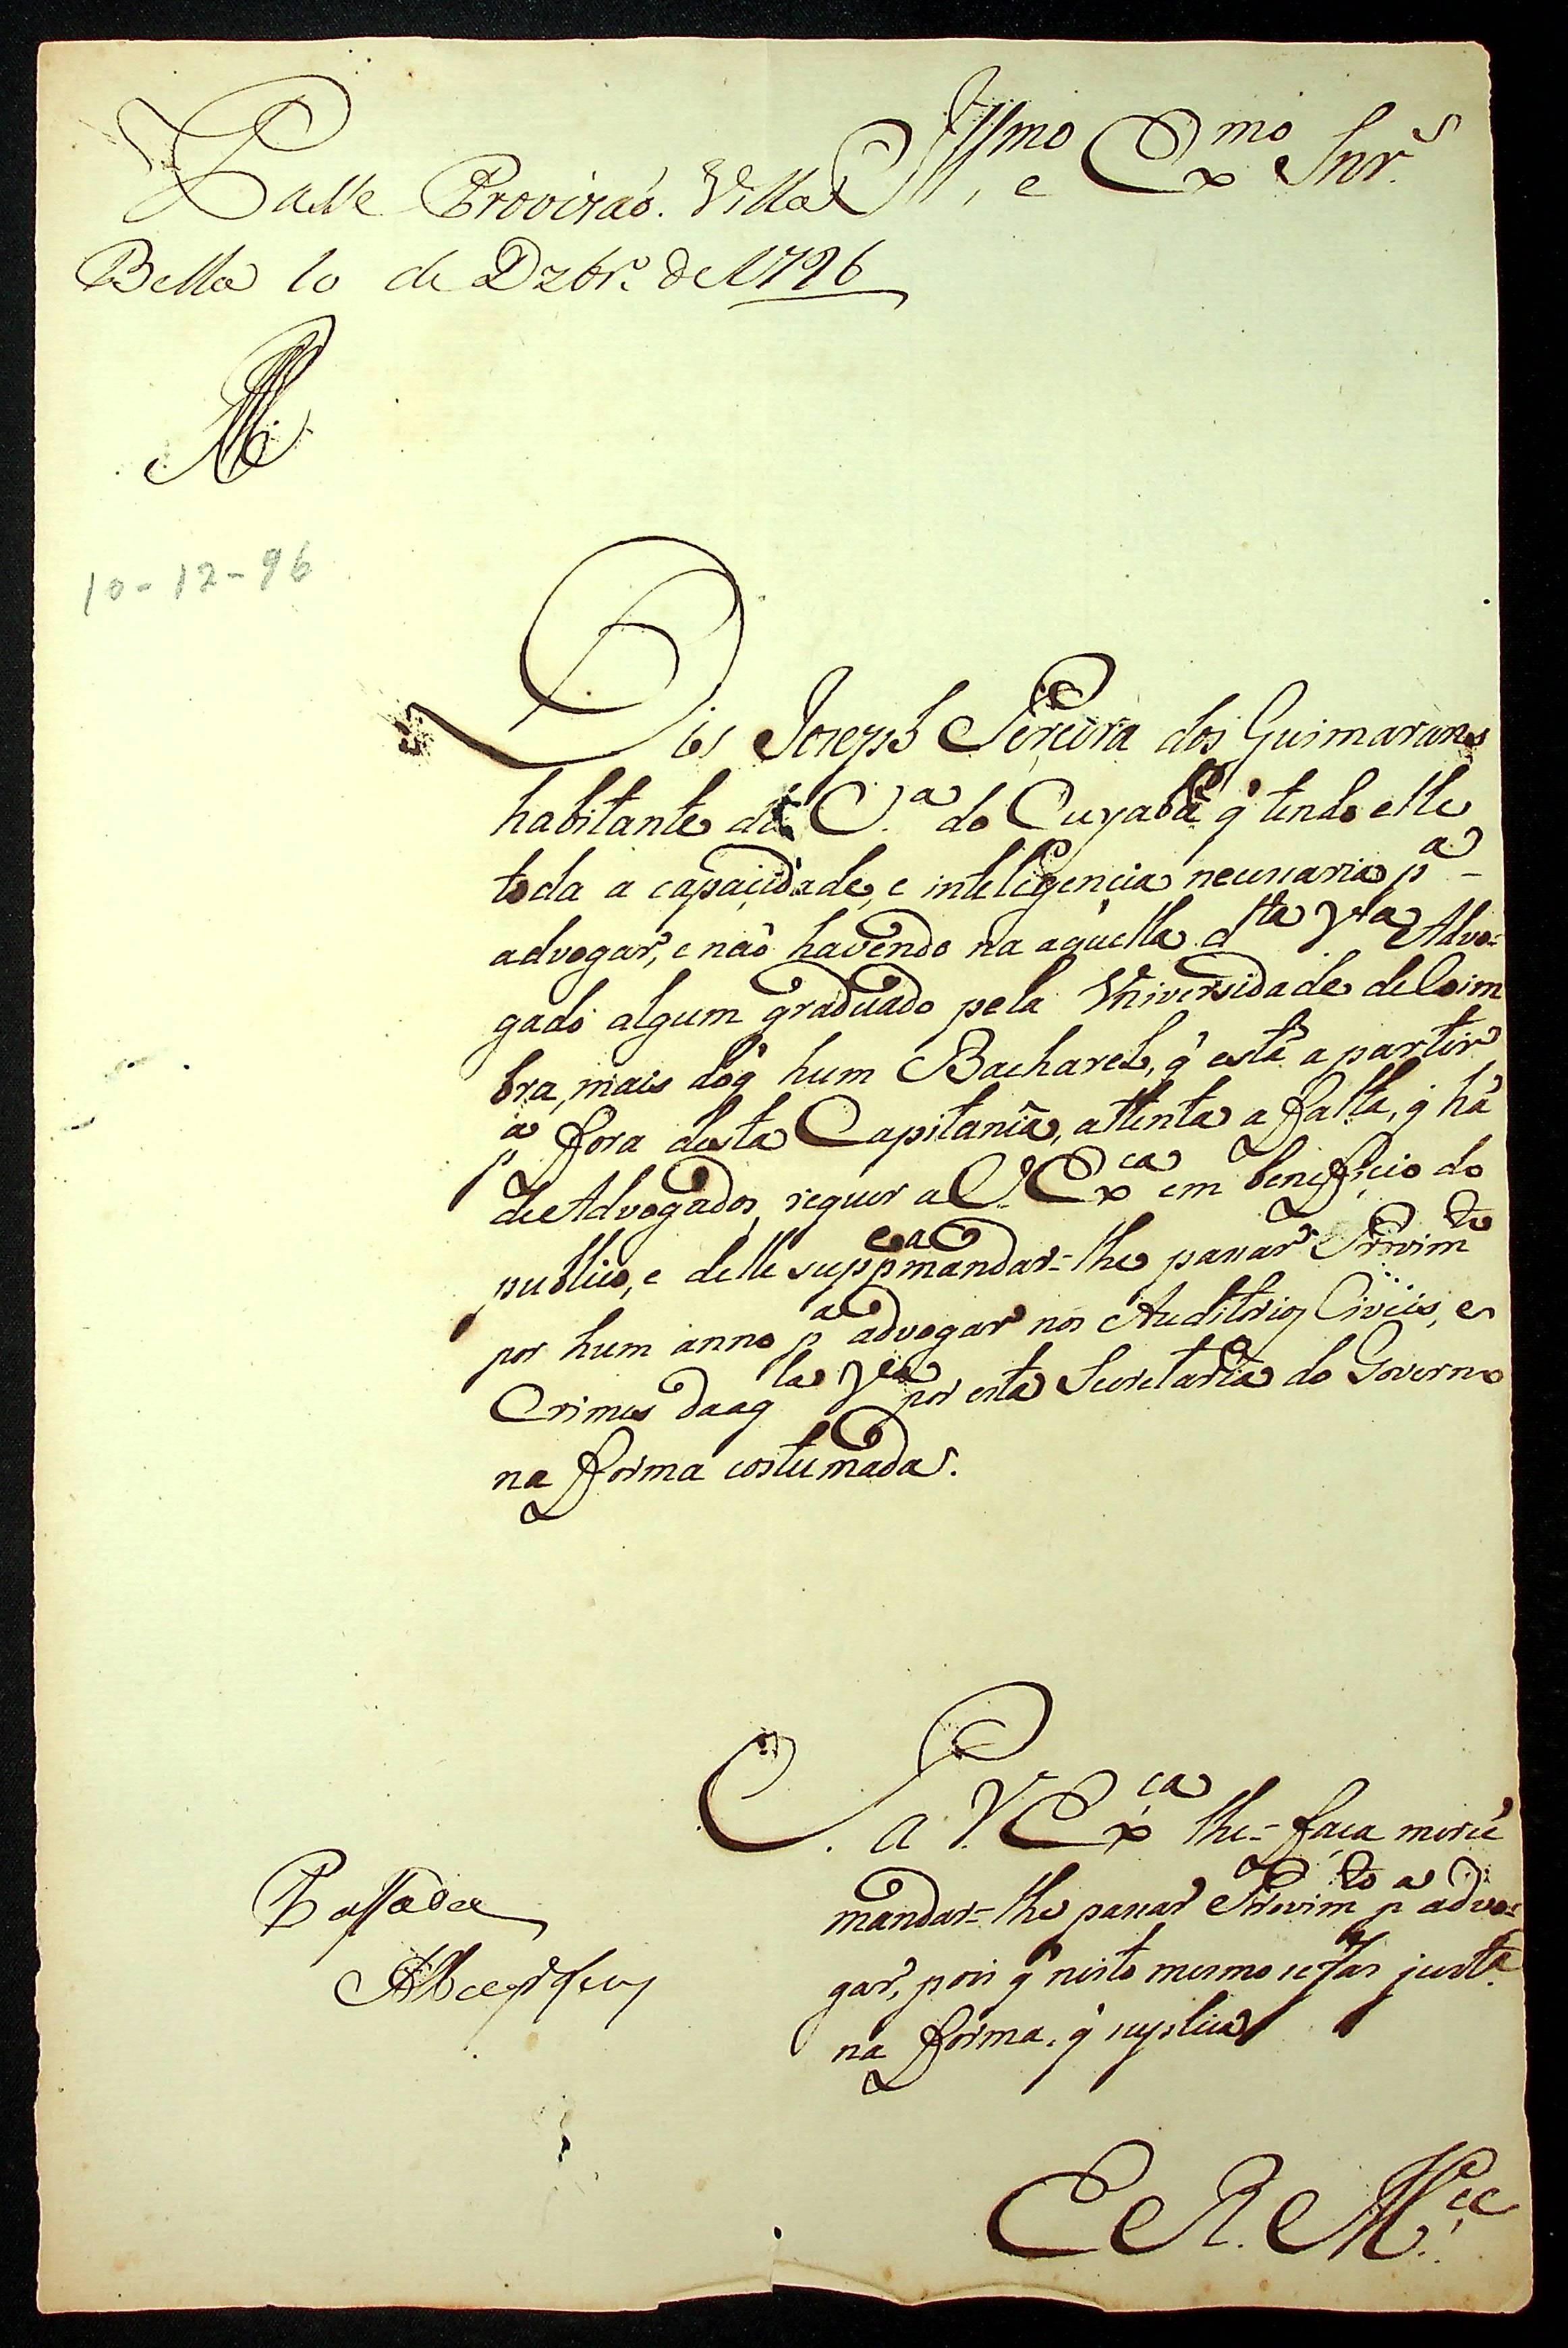 Ill.mo, e Ex.mo Snr.
Passe Provizaó. Villa
Bella 10 de Dzbr.º de 1796
10-12-96
Dis Joseph Pereira dos Guimarans
habitante da V.a do Cuyabá q̃ tendo elle
toda a capacidade, e inteligencia necessaria p.a
advogar, e naõ havendo na aquella d.ta V.a Advo-
gado algum graduado pela Vniversidade de Coim
bra, mais do q̃ hum Bacharel, q̃ está a partir
p.a fora desta Capitania, attenta a falta, q̃ há
de Advogados, requer a V. Ex.ca em beneficio do
publico, e delle supp.e mandar-lhe passar Provim.to
por hum anno p.a advogar nos Auditorios Civeis, e
Crimes da aq.la V.a por esta Secretaria do Governo
na forma costumada.
P. a V. Ex.ca lhe-faça mercê
mandar-lhe passar Provim.to p.a advo-
gar, pois q̃ nisto mesmo se fas just.a
na forma, q̃ suplica
Passada
E. R. M.ce